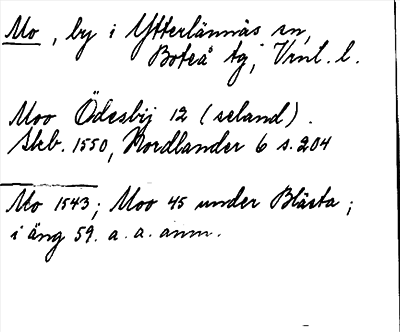 Mo, by i Ytterlännäs sn,
Boteå tg, Vrnl. l.
Moo Ödesbij 12 (seland).
Skb. 1550, Nordlander 6 s. 204
Mo 1543; Moo 45 under Blästa;
i äng 59. a. a. anm.